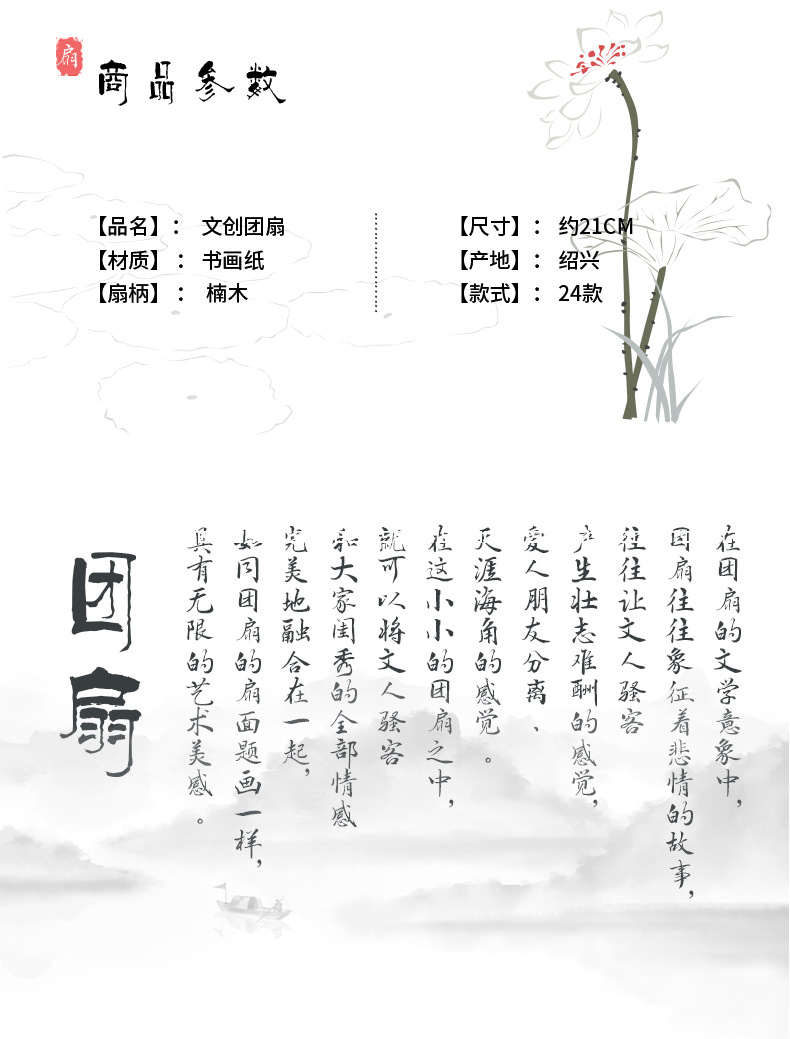 扇
商品参数
【品名】： 文创团扇
【材质】： 书画纸
【扇柄】： 楠木
【尺寸】：约21CM
【产地】：绍兴
【款式】：24款
团扇
在团扇的文学意象中，
团扇往往象征着悲情的故事，
往往让文人骚客
产生壮志难酬的感觉，
爱人朋友分离、
天涯海角的感觉。
在这小小的团扇之中，
就可以将文人骚客
和大家闺秀的全部情感
完美地融合在一起，
如同团扇的扇面题画一样，
具有无限的艺术美感。